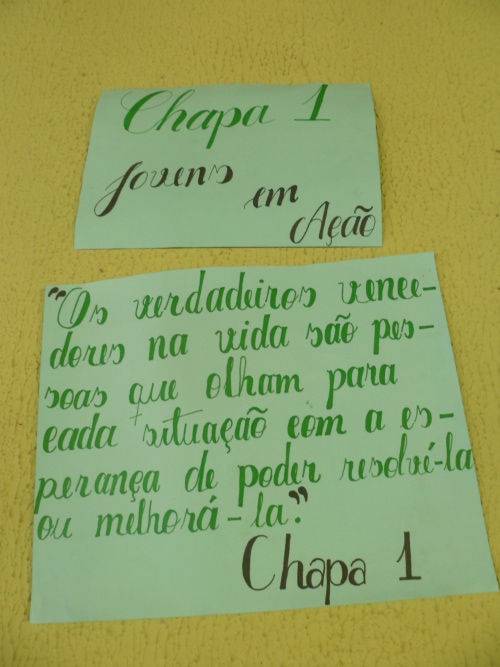 Chapa 1
Jovens em Ação
"Os verdadeiros vence-
dores na vida são pes-
soas que olham para
cada situação com a es-
perança de poder resolvê-la
ou melhorá-la."
Chapa 1